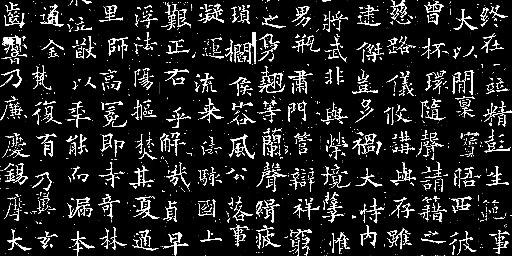 終在並精彭生範事
大以間稟寶晤西彼
曾杯環隨聲請籍之
慈路儀攸講典存雖
逮傑豈多禍大特内
將武非與榮境孽惟
男瓶肅門管辯祥窮
之身翹等蘭聲緝疲
瑣侯容風公落事
凝運流来法際國上
艱正石乎解哉貞早
浮法陽摳焚其夏通
里師高冕即寺奇林
泣猷以率能而漏本
通金梵復百乃真玄
齒響乃廉慶錫摩大